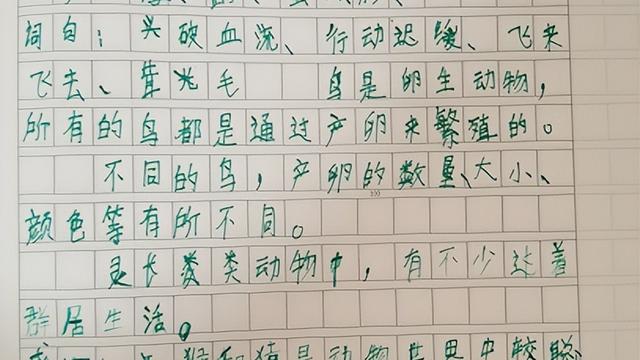 词句：头破血流、行动迟缓、飞来
飞去、茸光毛 鸟是卵生动物，
所有的鸟都是通过产卵来繁殖的。
不同的鸟，产卵的数量、大小、
颜色等有所不同。
灵长类类动物中，有不少过着
群居生活。
猴和猪是动物世界中较聪